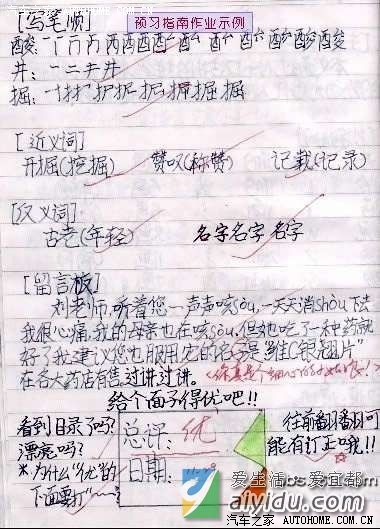 预习指南作业示例
[写笔顺]
酸:一丆丙丙西酉酉酸酸酸酸酸酸
井:一二キ井
掘:
[近义词]
开掘(挖掘) 赞叹(称赞) 记载(记录)
[反义词]
古老(年轻) 名字名字名字
[留言板]
刘老师,听着您一声声咳sòu,一天天消shòu下去
我很心痛,我的母亲也在咳sòu,但她吃了一种药就
好了我建议您也服用,它的名字是“维C银翘片”
在各大药店有售,过讲过讲。(你真是个细心的好孩子!)
给个面子得优吧!!
看到目录了吗?
漂亮吗?
*为什么“优”的
下面要打“~”?
总评:优
日期:
往前翻翻可
能有订正哦!!
爱生活bbs.爱宜都
aiyidu.com
汽车之家 AUTOHOME.COM.CN